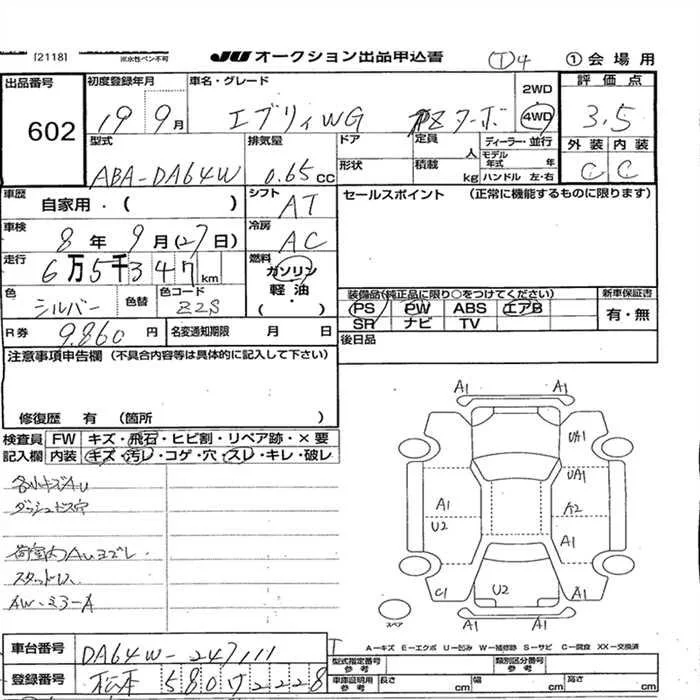 [2118] ※水性ペン不可 JU オークション出品申込書 ① 4 ①会場用
出品番号 初度登録年月 車名・グレード 2WD 評価点
602 19 9月 エブリィWG PZターボ 4WD 3.5
型式 排気量 ドア 定員 人 ディーラー・並行 外装 内装
ABA-DA64W 0.65cc 形状 積載 kg モデル年式 年 ハンドル 左・右 C C
車歴 自家用・( ) シフト AT セールスポイント (正常に機能するものに限ります)
車検 8年9月(27日) 冷房 AC
走行 6万5千347km 燃料 ガソリン 軽油・( )
色 シルバー 色替 色コード Z2S 装備品(純正品に限り○をつけてください) 新車保証書
R券 9,860円 名変通知期限 月 日 PS PW ABS エアB 有・無
SR ナビ TV
注意事項申告欄 (不具合内容等は具体的に記入して下さい) 後日品
修復歴 有 (箇所 )
検査員 FW キズ・飛石・ヒビ割・リペア跡・×要
記入欄 内装 キズ・汚レ・コゲ・穴・スレ・キレ・破レ
各小キズAU
ダッシュビス穴
荷室内AUヨゴレ
スタッドレス
AW・ミラーA
A1 A1
UA1
UA1
A1 A2
U2 A1
C1 U2 A1
A1 A1
スペア
A-キズ E-エクボ U-凹み W-補修跡 S-サビ C-腐食 XX-交換済
車台番号 DA64W-247111 型式指定番号 参考 類別区分番号 参考
登録番号 松本 580 つ 2228 車庫証明用 参考 長さ cm 幅 cm 高さ cm